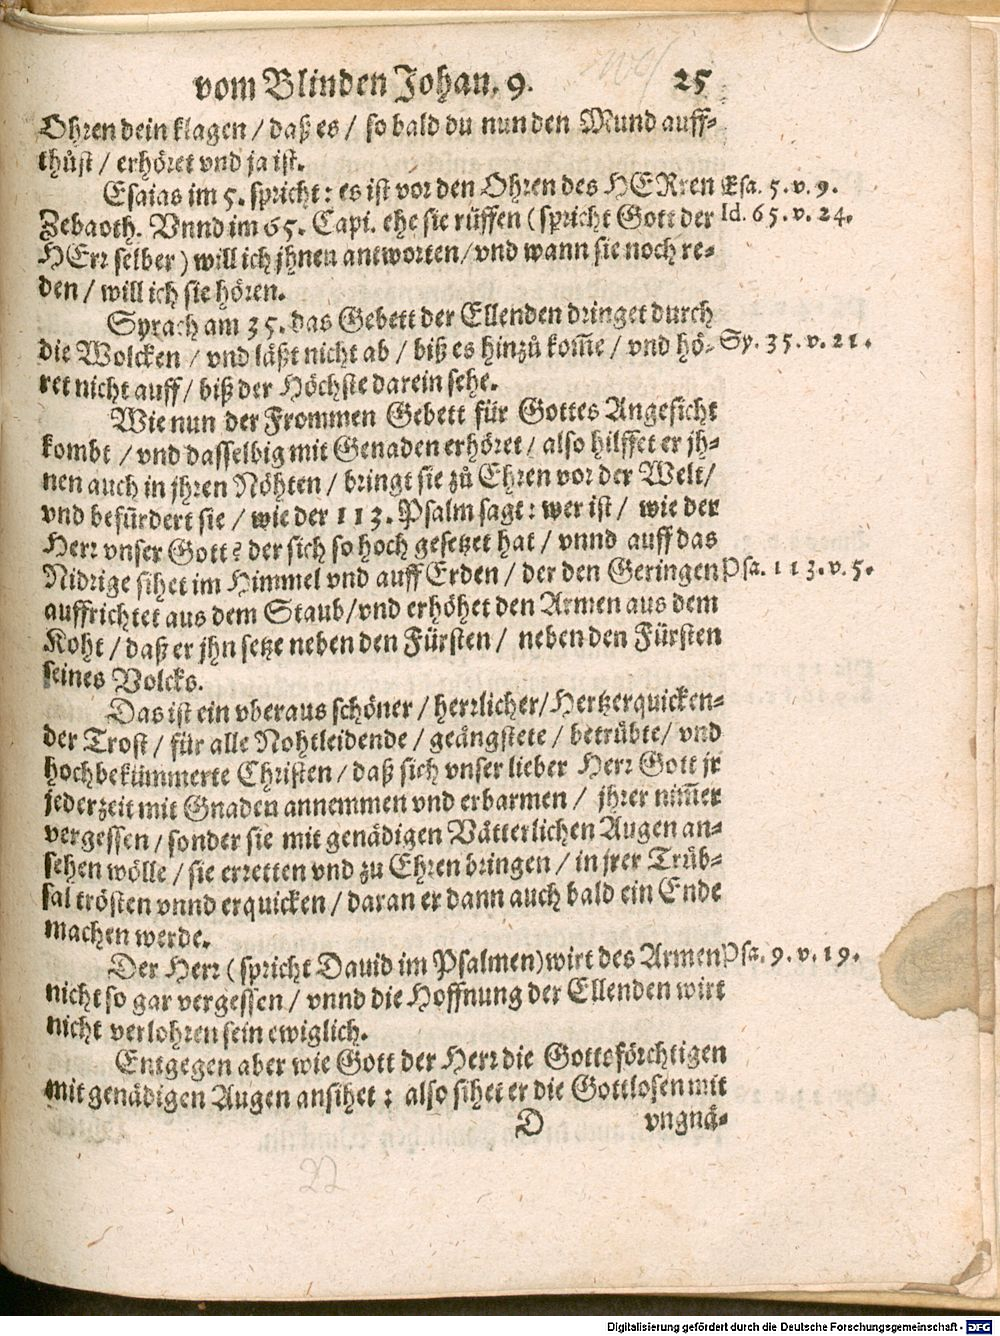 vom Blinden Johan. 9. 25
Ohren dein klagen / daß es / so bald du nun den Mund auff-
thůst / erhöret vnd ja ist.
Esaias im 5. spricht: es ist vor den Ohren des HERren Esa. 5. v. 9.
Zebaoth. Vnnd im 65. Capi. ehe sie rüffen (spricht Gott der Id. 65. v. 24.
HErr selber) will ich jhnen antworten/vnd wann sie noch re-
den / will ich sie hören.
Syrach am 35. das Gebett der Ellenden dringet durch
die Wolcken / vnd läßt nicht ab / biß es hinzů kom̃e / vnd hö- Sy. 35. v. 21.
ret nicht auff / biß der Höchste darein sehe.
Wie nun der Frommen Gebett für Gottes Angesicht
kombt / vnd dasselbig mit Genaden erhöret / also hilffet er jh-
nen auch in jhren Nöhten / bringt sie zů Ehren vor der Welt/
vnd befürdert sie / wie der 113. Psalm sagt: wer ist / wie der
Herr vnser Gott? der sich so hoch gesetzet hat / vnnd auff das
Nidrige sihet im Himmel vnd auff Erden / der den Geringen Psa. 113. v. 5.
auffrichtet aus dem Staub/vnd erhöhet den Armen aus dem
Koht / daß er jhn setze neben den Fürsten / neben den Fürsten
seines Volcks.
Das ist ein vberaus schöner / herrlicher/Hertzerquicken-
der Trost / für alle Nohtleidende / geängstete / betrübte/ vnd
hochbekümmerte Christen / daß sich vnser lieber Herr Gott jr
jederzeit mit Gnaden annemmen vnd erbarmen / jhrer nim̃er
vergessen / sonder sie mit genädigen Vätterlichen Augen an-
sehen wölle / sie erretten vnd zu Ehren bringen / in jrer Trüb-
sal trösten vnnd erquicken / daran er dann auch bald ein Ende
machen werde.
Der Herr (spricht Dauid im Psalmen) wirt des Armen Psa. 9. v. 19.
nicht so gar vergessen / vnnd die Hoffnung der Ellenden wirt
nicht verlohren sein ewiglich.
Entgegen aber wie Gott der Herr die Gottsförchtigen
mit genädigen Augen ansihet: also sihet er die Gottlosen mit
D vngnä-
22
Digitalisierung gefördert durch die Deutsche Forschungsgemeinschaft - DFG